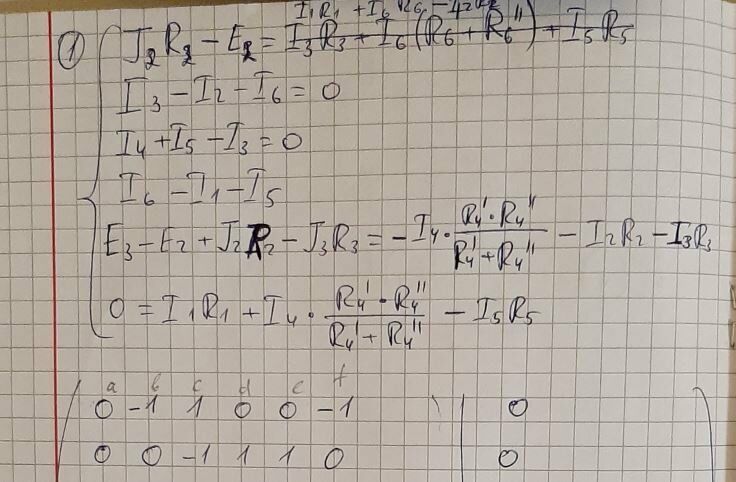 I₁R₁ + I₆R₆ - I₂R₂
① J₂R₂ - E₂ = I₃R₃ + I₆(R₆ + R₆'') + I₅R₅
I₃ - I₂ - I₆ = 0
I₄ + I₅ - I₃ = 0
I₆ - I₁ - I₅
E₃ - E₂ + J₂R₂ - J₃R₃ = -I₄ · (R₄' · R₄'')/(R₄' + R₄'') - I₂R₂ - I₃R₃
0 = I₁R₁ + I₄ · (R₄' · R₄'')/(R₄' + R₄'') - I₅R₅
a b c d e f
0 -1 1 0 0 -1 | 0
0 0 -1 1 1 0 | 0